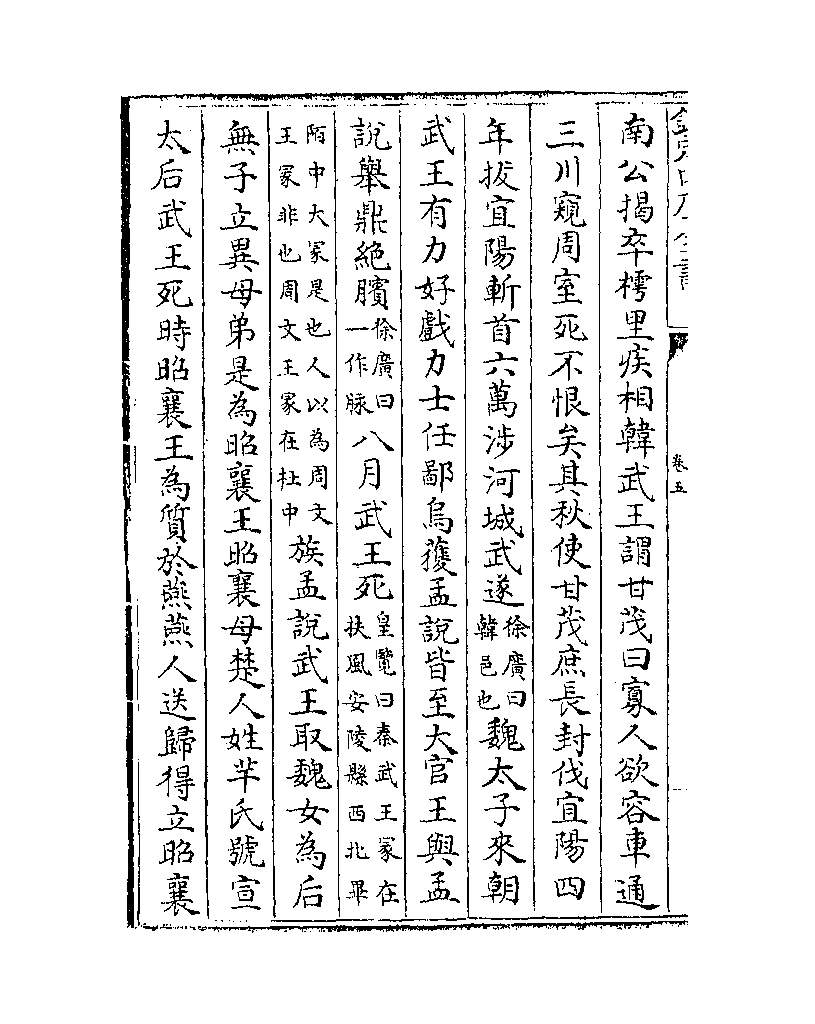 欽定四庫全書
卷五
南公揭卒樗里疾相韓武王謂甘茂曰寡人欲容車通
三川窺周室死不恨矣其秋使甘茂庶長封伐宜陽四
年拔宜陽斬首六萬涉河城武遂徐廣曰韓邑也魏太子來朝
武王有力好戲力士任鄙烏獲孟說皆至大官王與孟
說舉鼎絶臏徐廣曰一作脉八月武王死皇覽曰秦武王冢在扶風安陵縣西北畢
陌中大冢是也人以為周文王冢非也周文王冢在杜中族孟說武王取魏女為后
無子立異母弟是為昭襄王昭襄母楚人姓芈氏號宣
太后武王死時昭襄王為質於燕燕人送歸得立昭襄